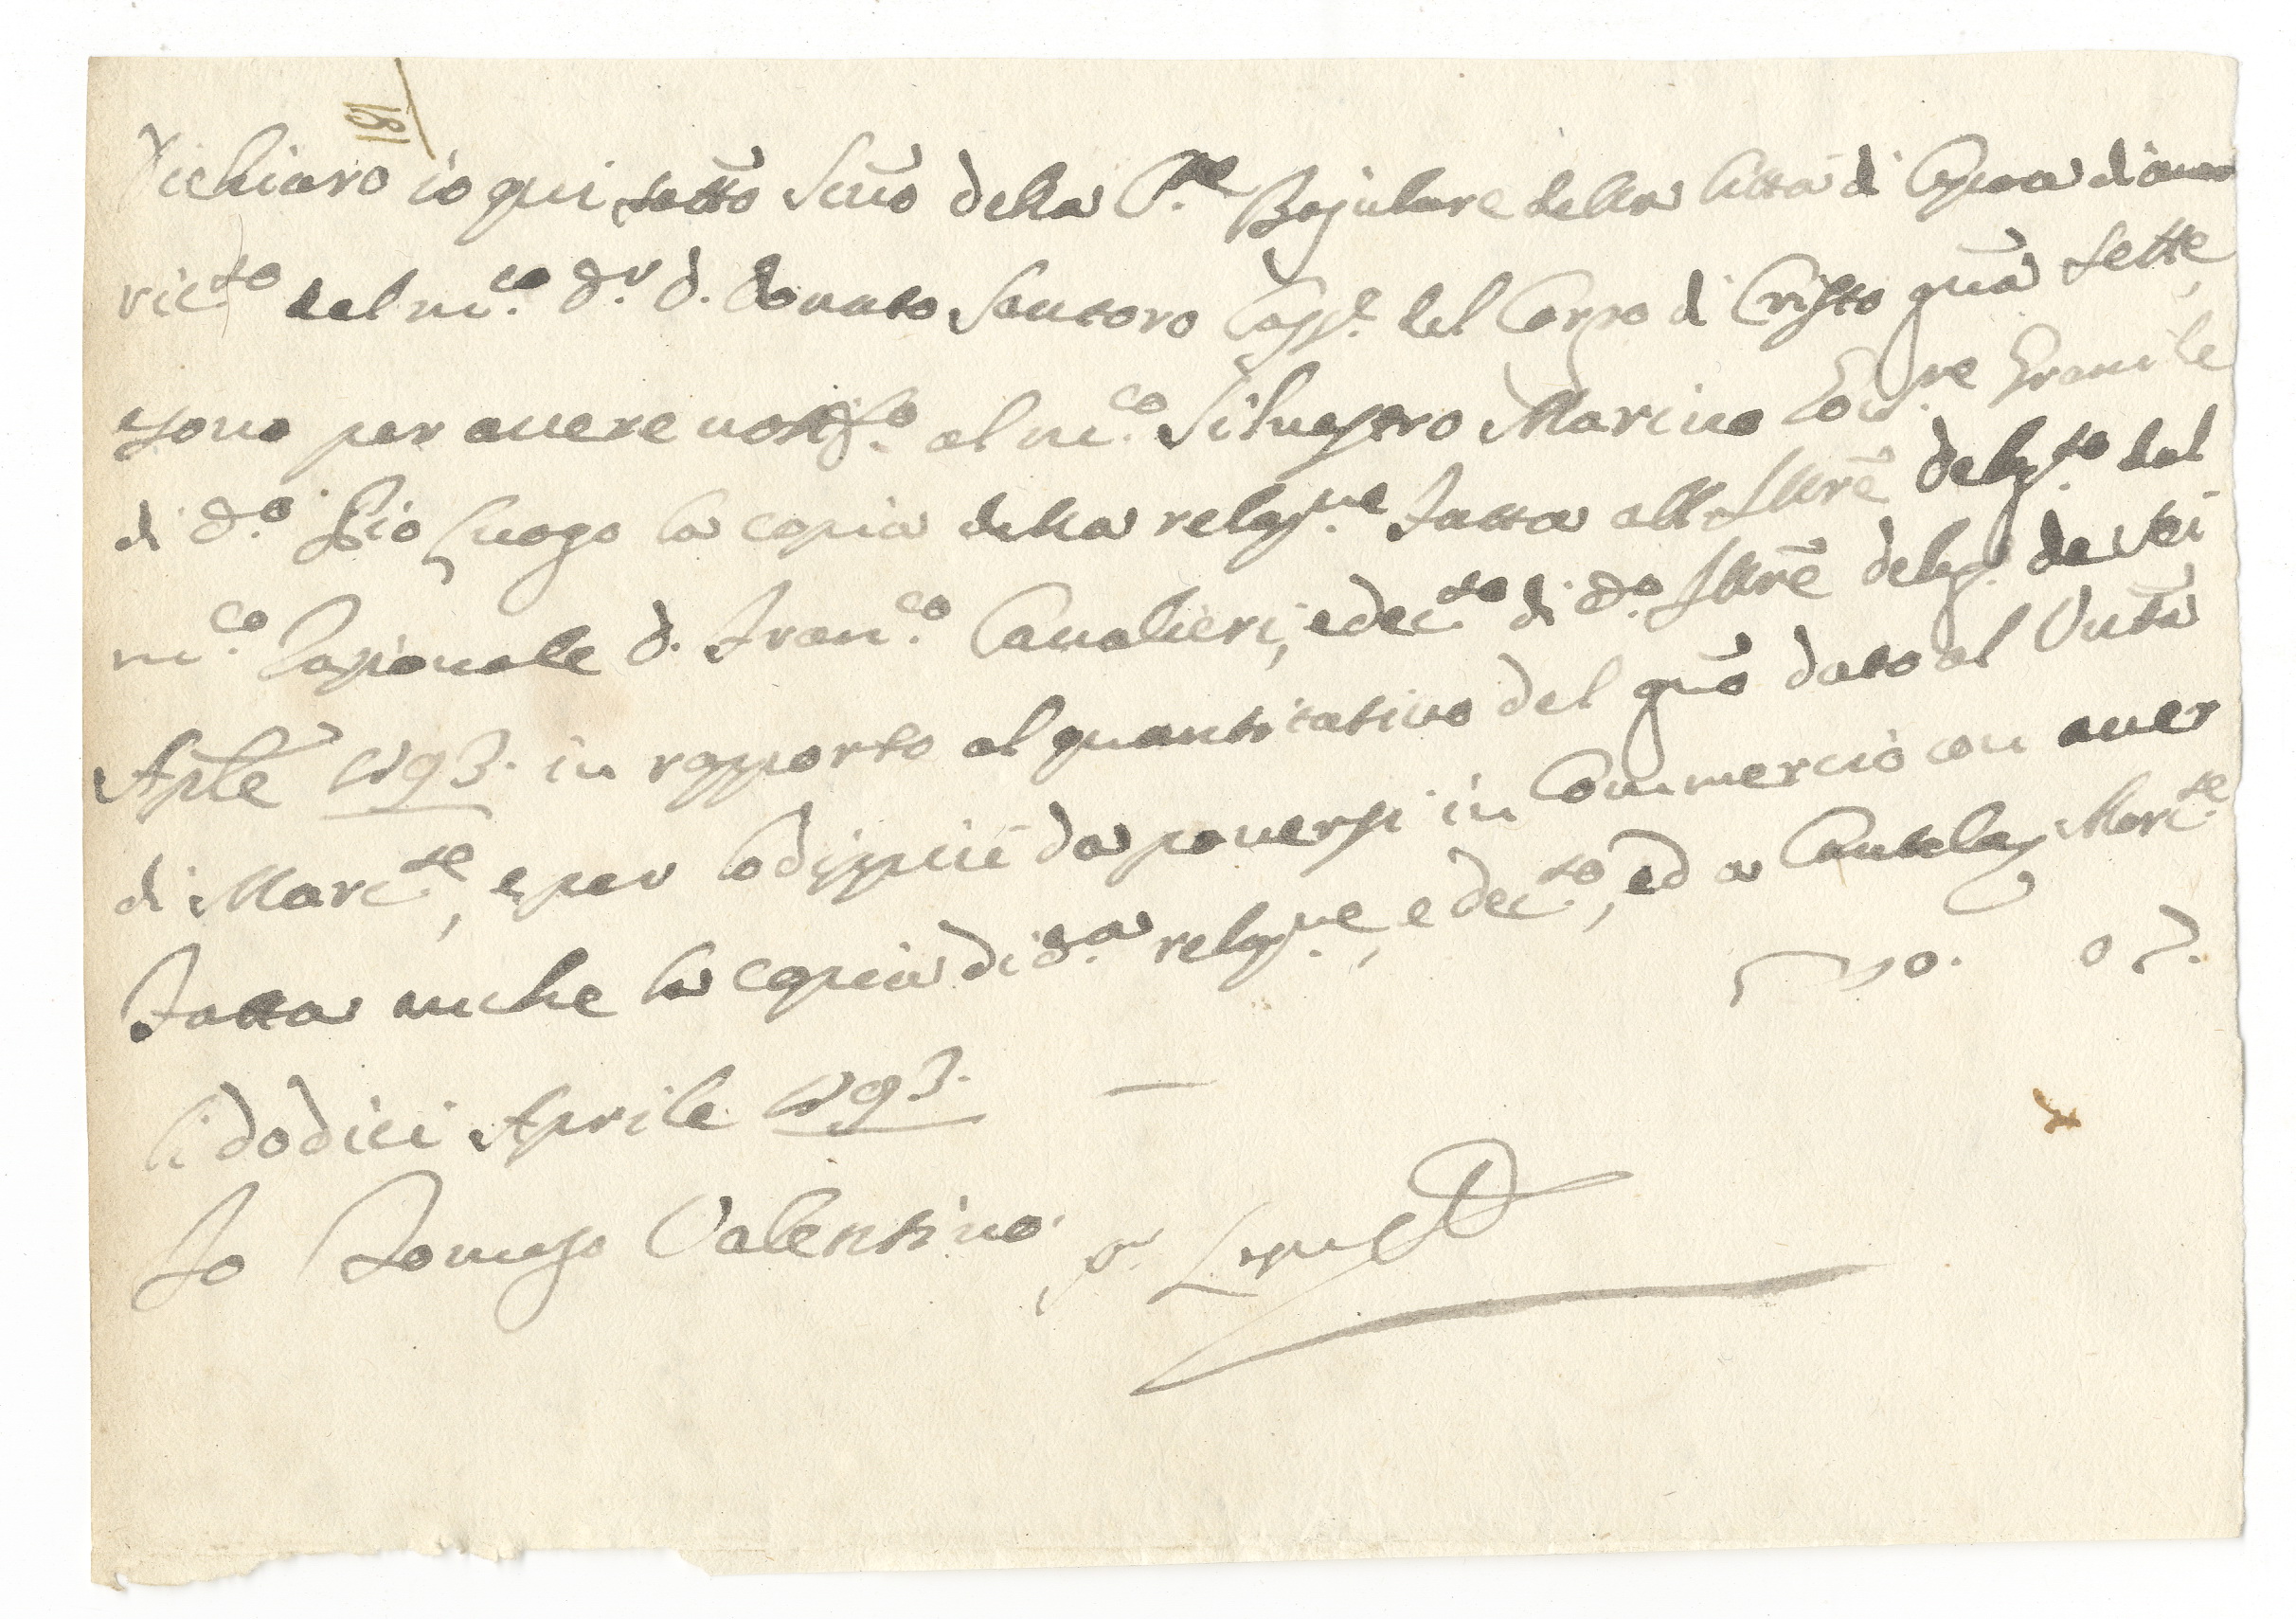 181
Dichiaro io qui sotto Scrō della C.te Bajulare della Città di Capua di aver
ric.to del m.co D.r D. Donato Santoro Capp.e del Corpo di Cristo gnā sette,
e sono per avere notif.to al m.co Silvestro Marino Gov.re Granile
di d.o Pio Luogo la copia della relaz.ne fatta all' Illrē deleg.to dal
m.co Razionale D. Fran.co Cavalieri, e dec.to di d.o Illrē deleg.to de sei
Aple 1793. in rapporto al quantitativo del gnō dato al
di Marc.te, e per lo di ppiù da ponersi in Commercio con aver
fatta anche la copia di d.a relaz.ne, e dec.to, ed a Cautela
0. 07.
li dodici Aprile 1793. —
Io Tomaso Valentino